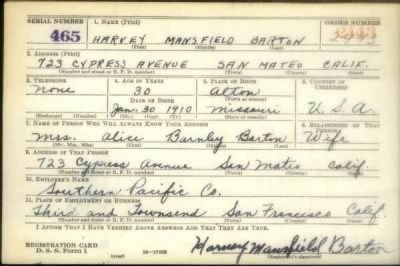 SERIAL NUMBER 1. NAME (Print) ORDER NUMBER
465 HARVEY MANSFIELD BARTON
(First) (Middle) (Last)
2. ADDRESS (Print)
723 CYPRESS AVENUE SAN MATEO CALIF.
(Number and street or R. F. D. number) (Town) (County) (State)
3. TELEPHONE 4. AGE IN YEARS 5. PLACE OF BIRTH 6. COUNTRY OF CITIZENSHIP
None 30 Alton
DATE OF BIRTH (Town or county)
Jan. 30 1910 Missouri U.S.A.
(Exchange) (Number) (Mo.) (Day) (Yr.) (State or country)
7. NAME OF PERSON WHO WILL ALWAYS KNOW YOUR ADDRESS 8. RELATIONSHIP OF THAT PERSON
Mrs. Alice Barnley Barton Wife
(Mr., Mrs., Miss) (First) (Middle) (Last)
9. ADDRESS OF THAT PERSON
723 Cypress Avenue San Mateo Calif.
(Number and street or R. F. D. number) (Town) (County) (State)
10. EMPLOYER'S NAME
Southern Pacific Co.
11. PLACE OF EMPLOYMENT OR BUSINESS
Third and Townsend San Francisco Calif.
(Number and street or R. F. D. number) (Town) (County) (State)
I AFFIRM THAT I HAVE VERIFIED ABOVE ANSWERS AND THAT THEY ARE TRUE.
REGISTRATION CARD
D. S. S. Form 1 Harvey Mansfield Barton
(over) (Registrant's signature)